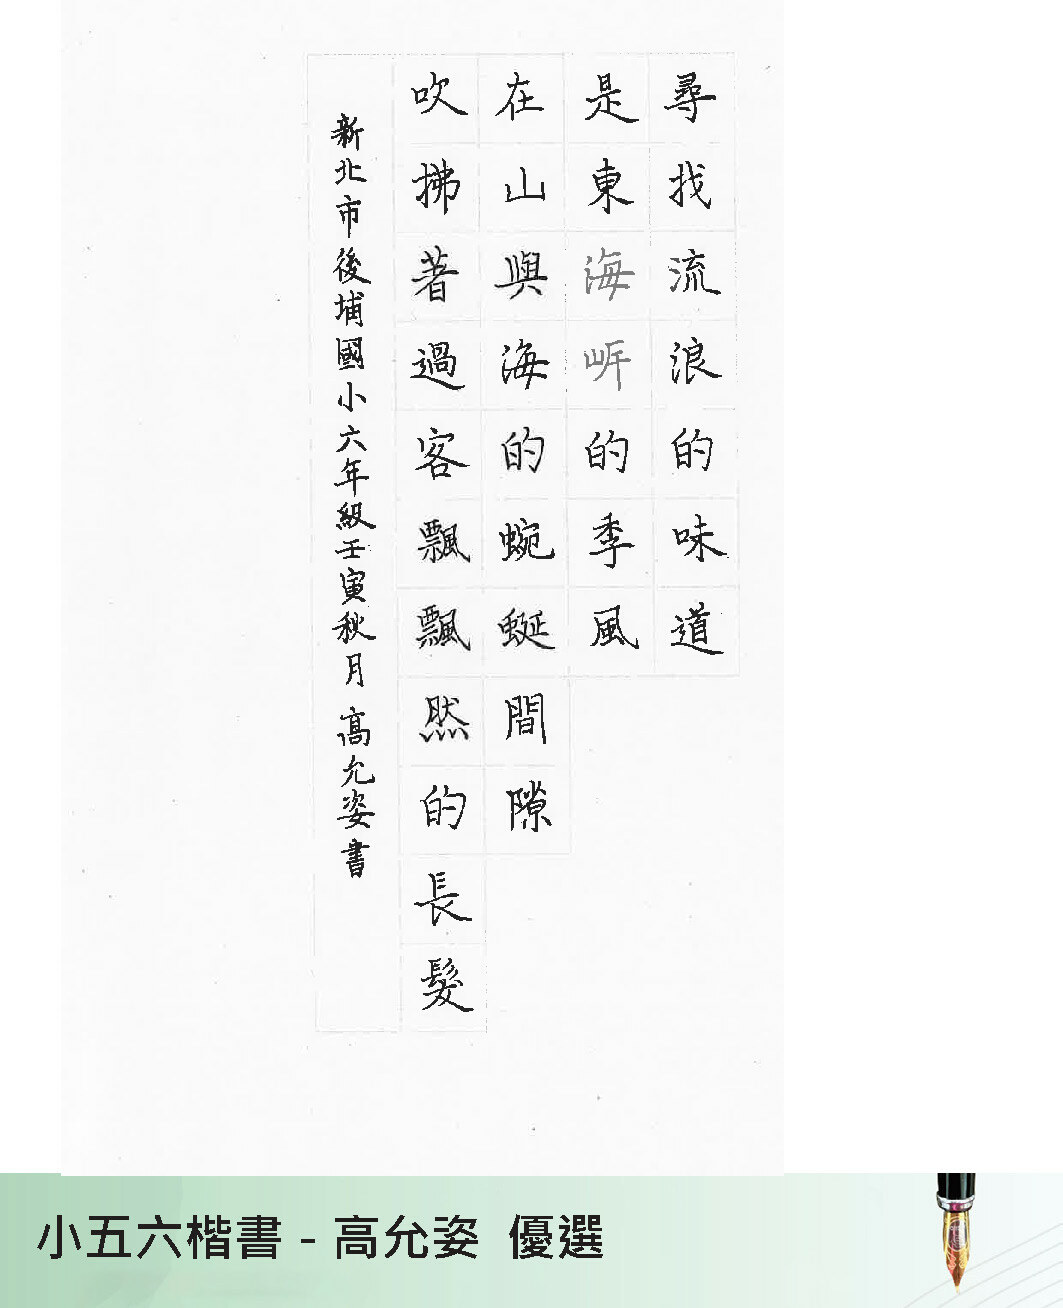 尋找流浪的味道
是東海岸的季風
在山與海的蜿蜒間隙
吹拂著過客飄飄然的長髮
新北市後埔國小六年級壬寅秋月 高允姿書
小五六楷書 - 高允姿 優選